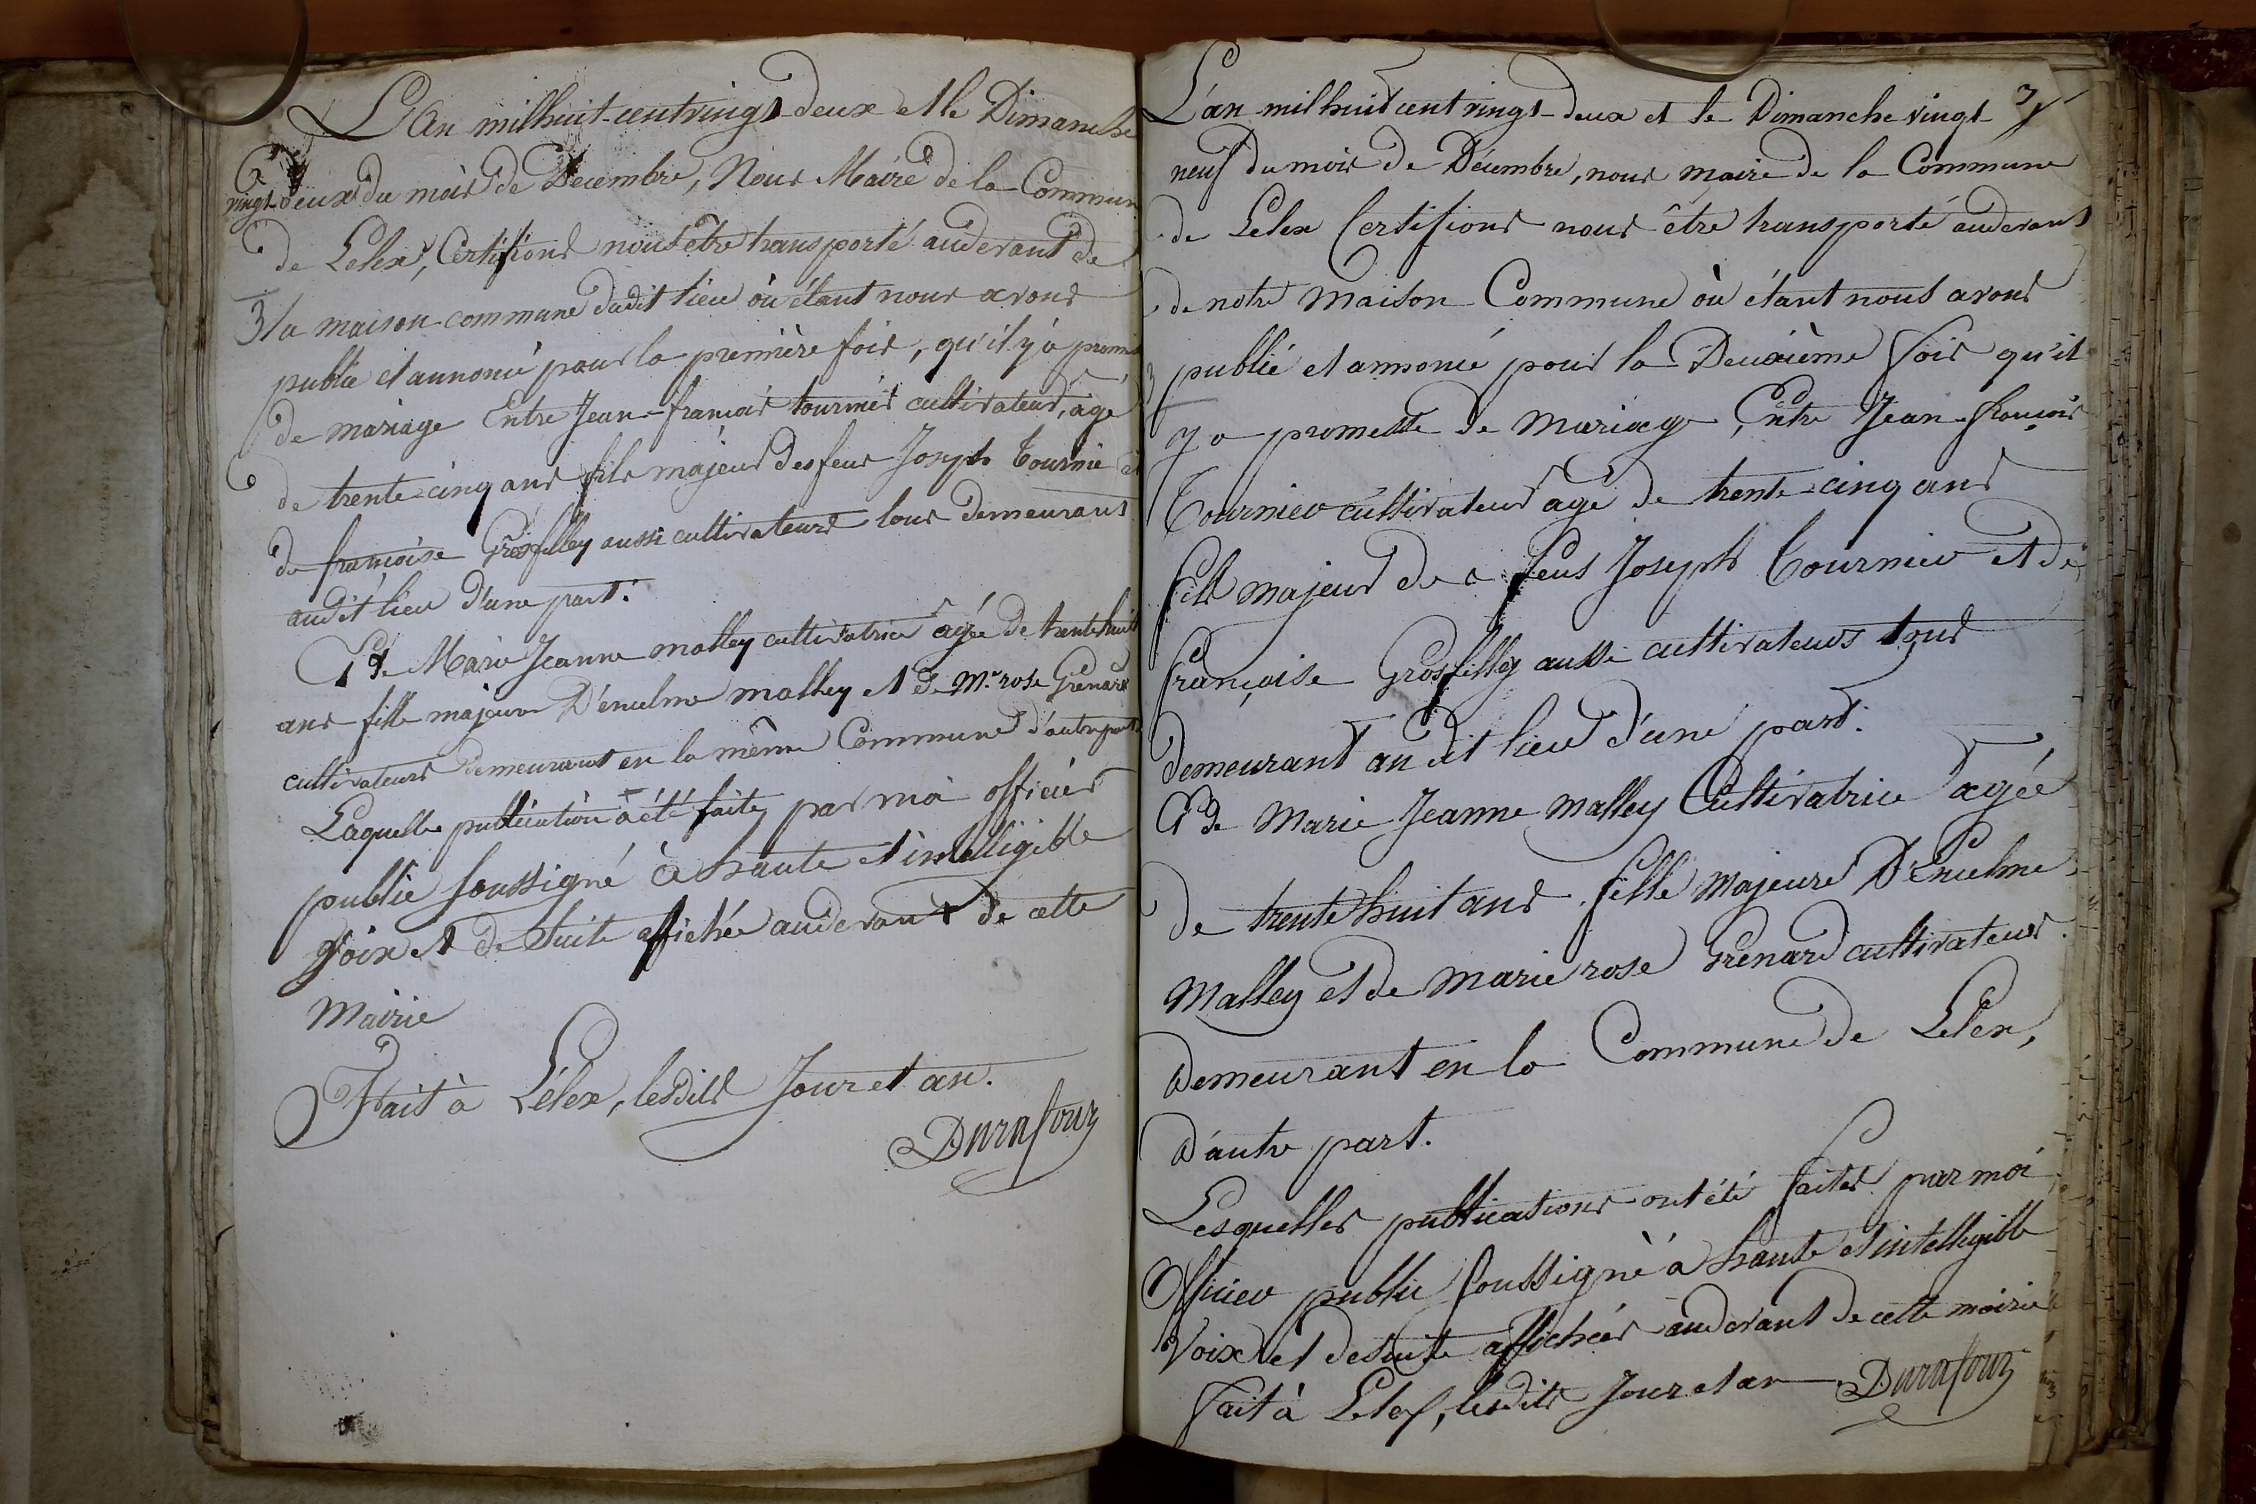 L'An milhuit-cent vingt-deux et le Dimanche
vingt-deux du mois de Décembre, Nous Maire de la Commun
de Lelex, Certifions nous être transporté audevant de
la maison commune dudit lieu où étant nous avons
publié et annoncé pour la première fois, qu'il y a prom
de mariage Entre Jean-françois tournier cultivateur, âgé
de trente-cinq ans fils majeur des feus Joseph Tournier et
de françoise Grosfilley aussi cultivateurs tous demeurant
audit lieu d'une part.
Et de Marie Jeanne malley cultivatrice agée de trente huit
ans fille majeure D'énielme malley et de M.e rose Grenard
cultivateurs demeurant en la même Commune d'autre part
Laquelle publication a été faite, par moi officier
public soussigné à haute et intelligible
Voix et de suite affichée audevant de cette
Mairie
Fait à Lélex, lesdits Jour et an.
Durafour
3
L'an milhuit cent vingt-deux et le Dimanche vingt
neuf du mois de Décembre, nous maire de la Commune
de Lelex Certifions nous être transporté audevant
de notre Maison Commune où étant nous avons
publié et annoncé pour la Deuxième fois qu'il
y a promesse de Mariage, Entre Jean-françois
Tournier cultivateur agé de trente-cinq ans
fils majeur de feus Joseph Tournier et de
françoise Grosfilley aussi cultivateurs tous
demeurant au dit lieu d'une part.
Et de Marie Jeanne Malley Cultivatrice agée
de trente huit ans fille Majeure D'Enielme
Malley et de Marie rose Grenard cultivateurs
demeurant en la Commune de Lelex,
d'autre part.
Lesquelles publications ont été faites par moi
Officier public soussigné à haute et intelligible
Voix et desuite affichées audevant de cette mairie
fait à Lelex, lesdits Jour et an Durafour